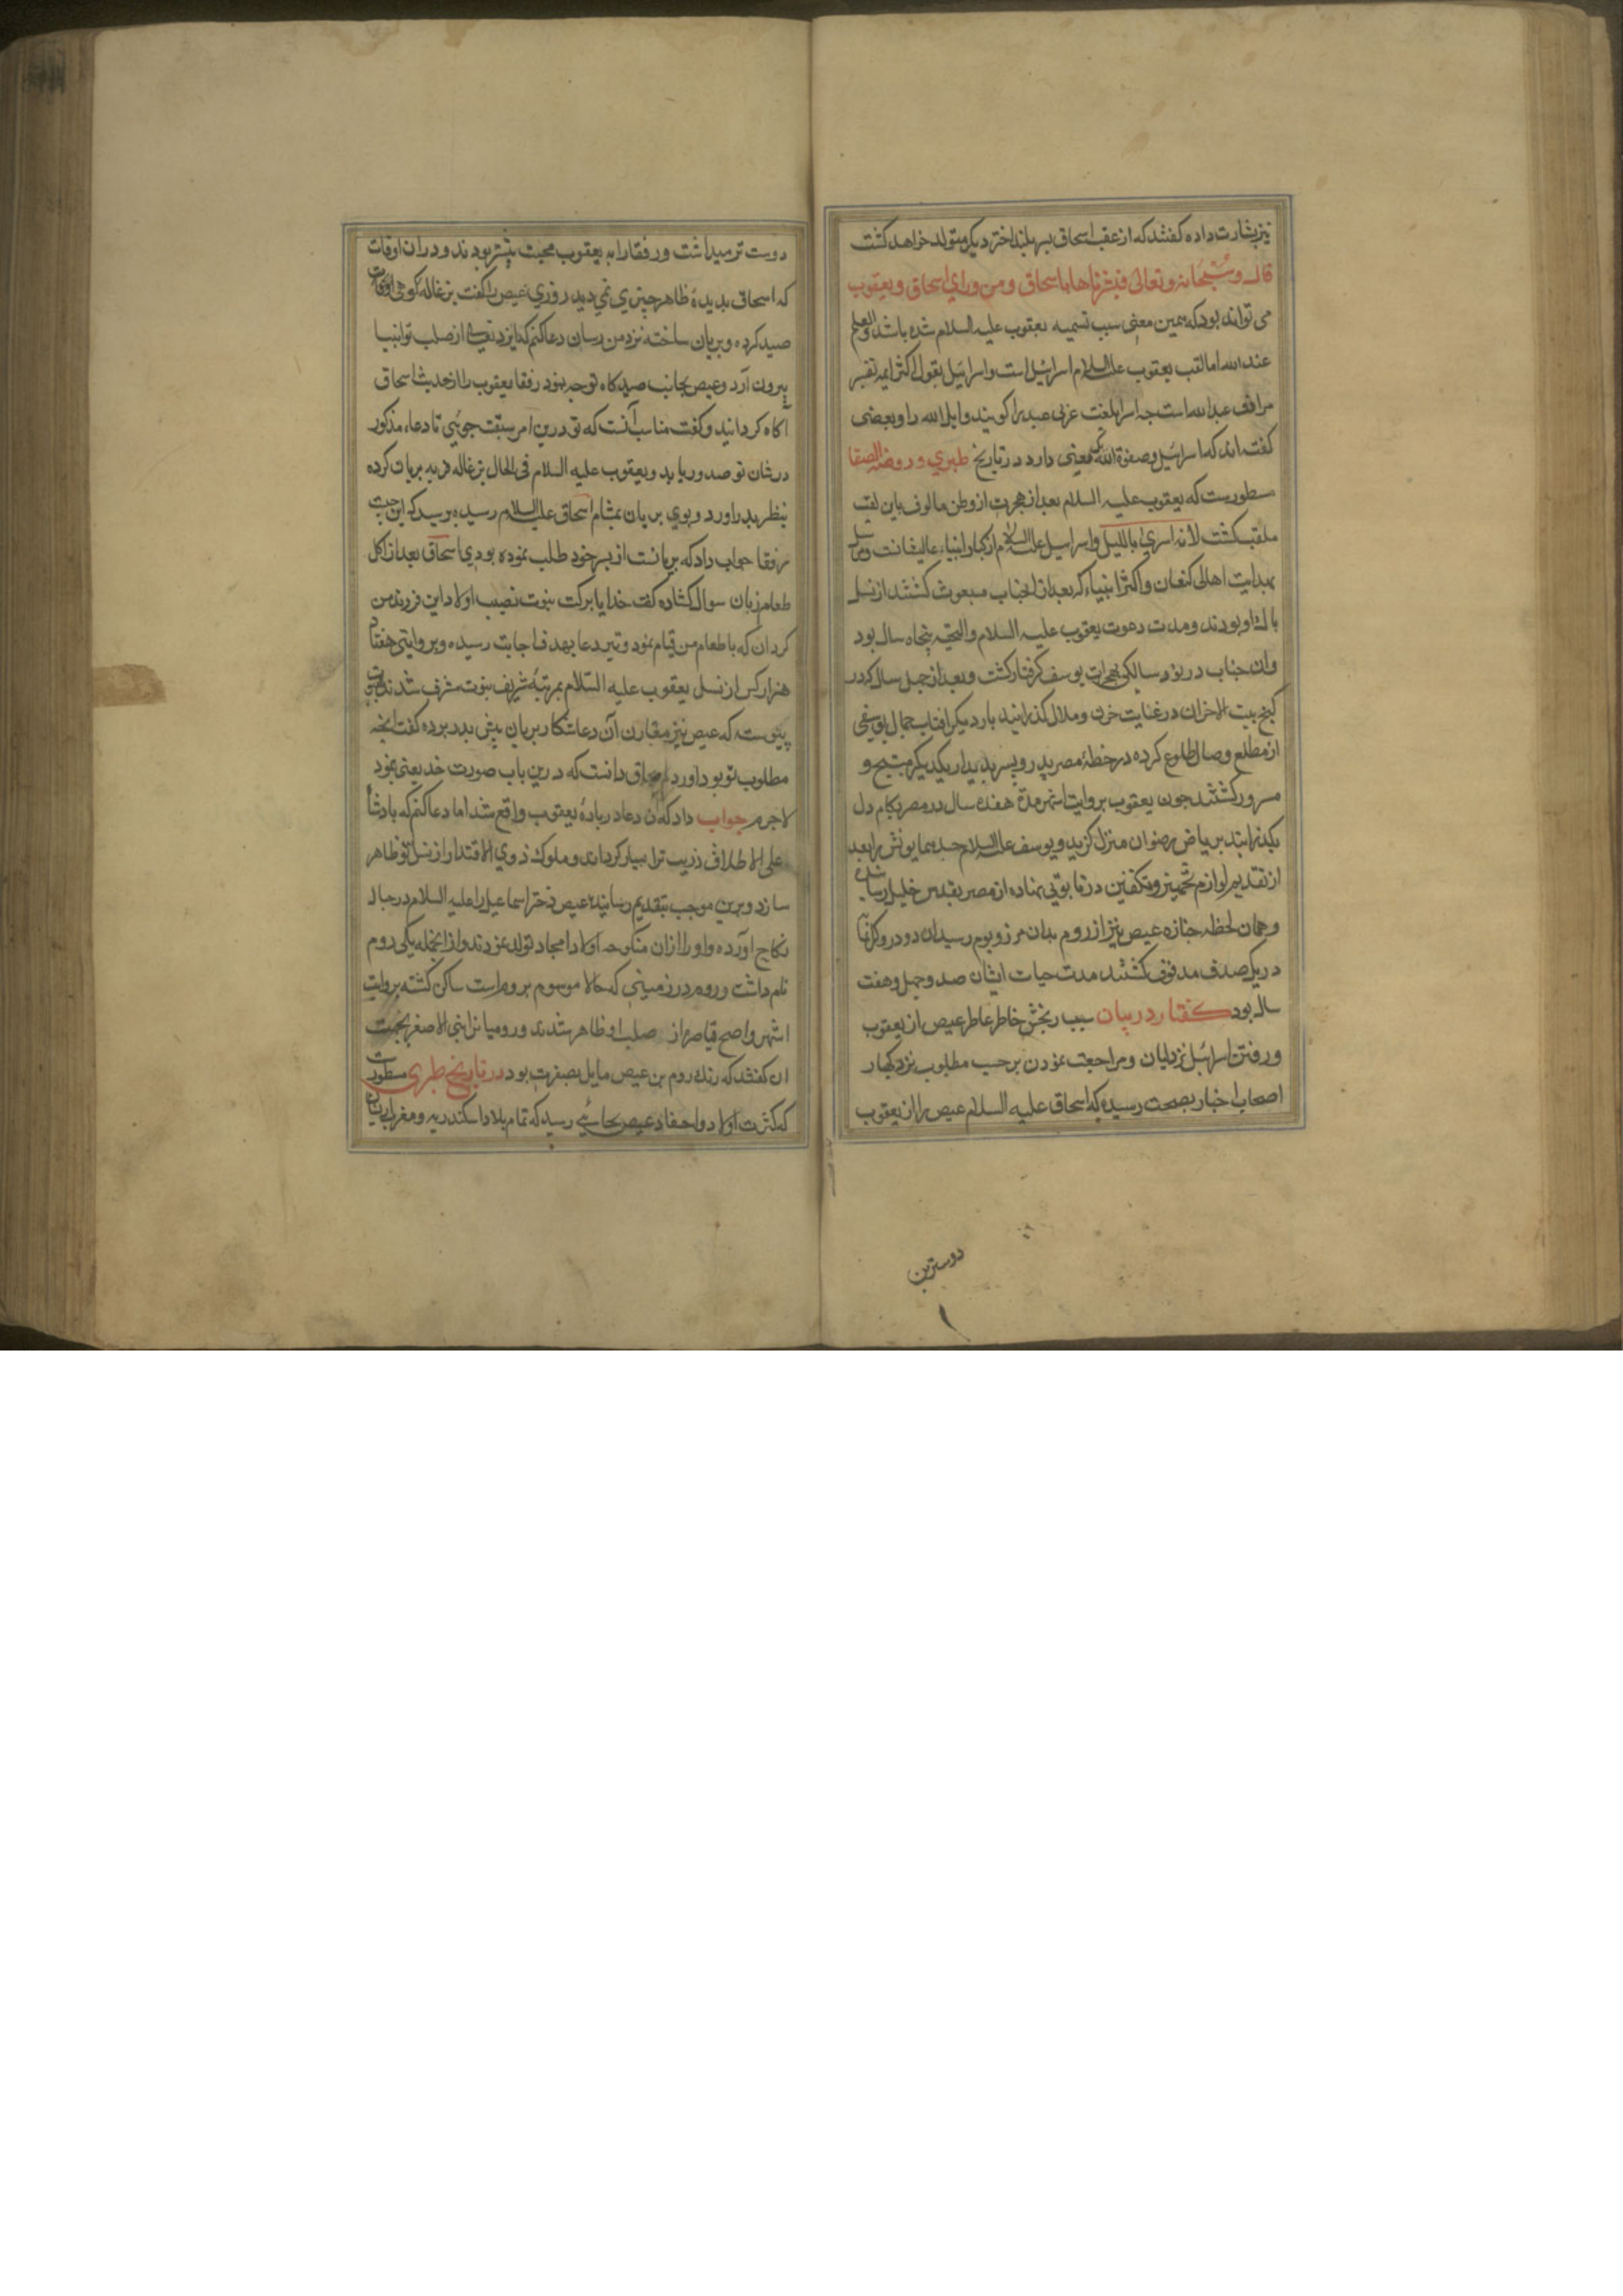 نیز بشارت داده گفتند که از عقب اسحاق پسر بلند اختر دیگر متولد خواهد گشت
قال سبحانه و تعالی فبشرناها باسحاق و من ورای اسحاق و یعقوب
می تواند بود که همین معنی سبب تسمیه یعقوب علیه السلام شده باشد والعلم
عند الله اما لقب یعقوب علیه السلام اسرائیل است و اسرائیل بقول اکثر ایمه تفسیر
مرادف عبد الله است چه اسرا بلغت عربی عبد را کویند و ایل الله را و بعضی
گفته اند که اسرائیل و صفوة الله یک معنی دارد در تاریخ طبری و روضة الصفا
مسطورست که یعقوب علیه السلام بعد از هجرت از وطن مالوف باین لقب
ملقب کشت لانه اسری باللیل و اسراییل علیه السلام از کبار انبیاء عالیشانست
بهدایت اهالی کنعان و اکثر انبیاء که بعد از آنجناب مبعوث کشتند از نسل
پاک او بودند و مدت دعوت یعقوب علیه السلام والتحیه پنجاه سال بود
وان جناب در نود سالکی بهجران یوسف گرفتار کشت و بعد از چهل سال که در
کنج بیت الاحزان در غایت حزن و ملال کذرانید بار دیگر افتاب جمال یوسفی
از مطلع وصال طلوع کرده در خطهٔ مصر پدر و پسر بدیدار یکدیکر مبتهج و
مسرور کشتند چون یعقوب بروایت اشهر مدة هفده سال در مصر بکام دل
بکذرانید بریاض رضوان منزل کزید و یوسف علیه السلام جسد همایونش را بعد
از تقدیم لوازم تجهیز و تکفین در تابوتی نهاده از مصر بقدس خلیل رسانید
و همان لحظه جنازه عیص نیز از روم بدان مرز و بوم رسید ان دو در
در یک صدف مدفون کشتند مدت حیات ایشان صد و چهل و هفت
سال بود کفتار در بیان سبب رنجش خاطر عاطر عیص از یعقوب
و رفتن اسرائیل نزد لیان و مراجعت نمودن بر حسب مطلوب نزد کبار
اصحاب اخبار بصحت رسیده که اسحاق علیه السلام عیص را از یعقوب
دوسترین
دوست تر میداشت و رفقا را به یعقوب محبت بیشتر بودند و در ان اوقات
که اسحاق بدیدهٔ ظاهر چیزی نمی دید روزی عیص را گفت بزغاله کوهی
صید کرده و بریان ساخته نزد من رسان دعا کنم که ایزد تعالی از صلب تو انبیا
بیرون آرد و عیص بجانب صیدکاه توجه نمود رفقا یعقوب را از حدیث اسحاق
آکاه کردانید و کفت مناسب آنست که تو درین امر سبقت جوئی تا دعاء مذکور
در شان تو صدور یابد و یعقوب علیه السلام فی الحال بزغاله فربه بریان کرده
بنظر پدر اورد و بوی بریان بمشام اسحاق علیه السلام رسیده پرسید که این چیست
رفقا جواب داد که بریانست از پسر خود طلب نموده بودی اسحاق بعد از اکل
طعام زبان سوال کشاده کفت خدایا برکت نبوت نصیب اولاد این فرزند من
کردان که با طعام من قیام نمود و تیر دعا بهدف اجابت رسیده و بروایتی هفتاد
هزار کس از نسل یعقوب علیه السلام بمرتبهٔ شریف نبوت مشرف شدند
پیوسته که عیص نیز مقارن آن دعا شکار بریان پیش پدر برده کفت انچه
مطلوب تو بود اورد اسحاق دانست که درین باب صورت خدیعتی نمود
لاجرم جواب داد که آن دعا در بارهٔ یعقوب واقع شد اما دعا کنم که پادشاه
علی الاطلاق ذریت ترا بسیار کرداند و ملوک ذوی الاقتدار از نسل تو ظاهر
سازد و برین موجب بتقدیم رسانید عیص دختر اسماعیل را علیه السلام در حباله
نکاح اورده و او را ازان منکوحه اولاد امجاد تولد نمودند و از انجمله یکی روم
نام داشت و روم در زمینی که حالا موسوم بروم است ساکن کشته بروایت
اشهر و اصح قیاصره از صلب او ظاهر شدند و رومیانرا بنی الاصفر بجهت
ان کفتند که رنک روم بن عیص مایل بصفرت بود در تاریخ طبری مسطورست
که کثرت اولاد و احفاد عیص بجائی رسید که تمام بلاد اسکندریه و مغرب